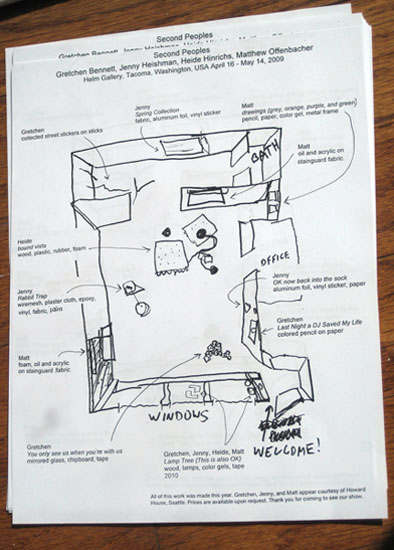 Second Peoples
Second Peoples
Gretchen Bennett, Jenny Heishman, Heide Hinrichs, Matthew Offenbacher
Helm Gallery, Tacoma, Washington, USA April 16 - May 14, 2009
Jenny
Spring Collection
fabric, aluminum foil, vinyl sticker
Matt
drawings (grey, orange, purple, and green)
pencil, paper, color gel, metal frame
Gretchen
collected street stickers on sticks
BATH
Matt
oil and acrylic on
stainguard fabric
Heide
bound vista
wood, plastic, rubber, foam
OFFICE
Jenny
OK now back into the sock
aluminum foil, vinyl sticker, paper
Jenny
Rabbit Trap
wiremesh, plaster cloth, epoxy,
vinyl, fabric, paint
Gretchen
Last Night a DJ Saved My Life
colored pencil on paper
Matt
foam, oil and acrylic
on stainguard fabric
WINDOWS
Gretchen
You only see us when you're with us
mirrored glass, chipboard, tape
Gretchen, Jenny, Heide, Matt
Lamp Tree (This is also OK)
wood, lamps, color gels, tape
2010
WELCOME!
All of this work was made this year. Gretchen, Jenny, and Matt appear courtesy of Howard
House, Seattle. Prices are available upon request. Thank you for coming to see our show.